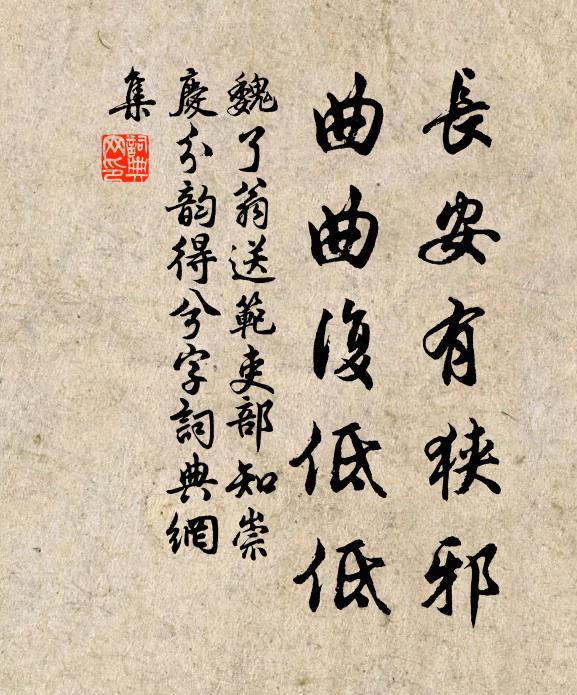 長安有狹邪
曲曲復低低
魏了翁送範吏部知崇
慶分韵得兮字詞典網
集
詞典
网印